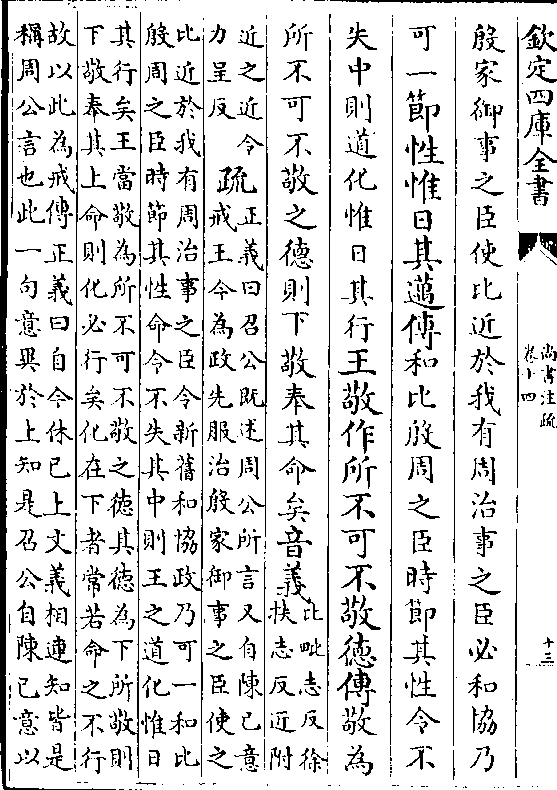 欽定四庫全書
尚書注疏
卷十四
十三
殷家御事之臣使比近於我有周治事之臣必和協乃
可一節性惟日其邁傳和比殷周之臣時節其性令不
失中則道化惟日其行王敬作所不可不敬德傳敬為
所不可不敬之德則下敬奉其命矣音義
比毗志反徐
扶志反近附
近之近令
力呈反
疏
正義曰召公既述周公所言又自陳已意
戒王今為政先服治殷家御事之臣使之
比近於我有周治事之臣令新舊和協政乃可一和比
殷周之臣時節其性命令不失其中則王之道化惟日
其行矣王當敬為所不可不敬之德其德為下所敬則
下敬奉其上命則化必行矣化在下者常若命之不行
故以此為戒傳正義曰自今休已上文義相連知皆是
稱周公言也此一句意異於上知是召公自陳已意以